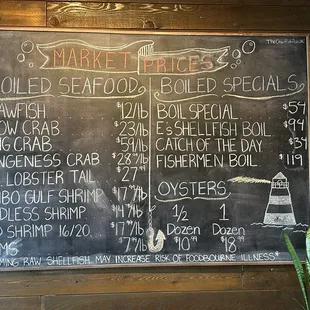 MARKET PRICES
BOILED SEAFOOD
CRAWFISH $12/lb
SNOW CRAB $23/lb
KING CRAB $59/lb
DUNGENESS CRAB $28/lb
LOBSTER TAIL $27
GULF SHRIMP $17/lb
HEADLESS SHRIMP $14/lb
SHRIMP 16/20 $17/lb
$7/lb
BOILED SPECIALS
BOIL SPECIAL $57
E's SHELLFISH BOIL $94
CATCH OF THE DAY $34
FISHERMEN BOIL $119
OYSTERS
1/2 1
Dozen Dozen
$10 $18
RAW SHELLFISH, MAY INCREASE RISK OF FOODBOURNE ILLNESS*